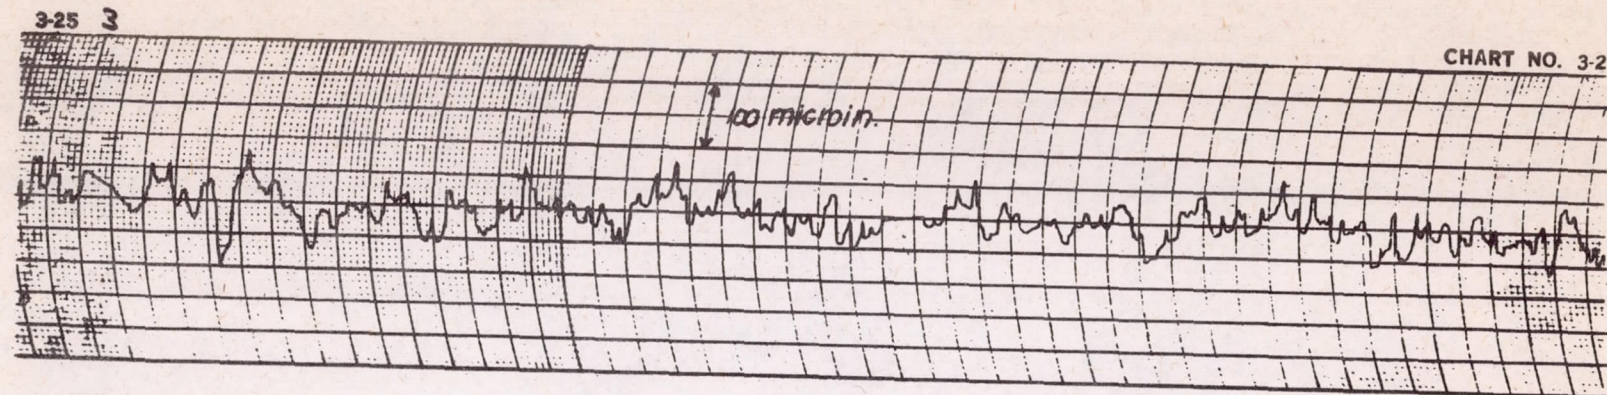 3-25 3
CHART NO. 3-2
100 microin.